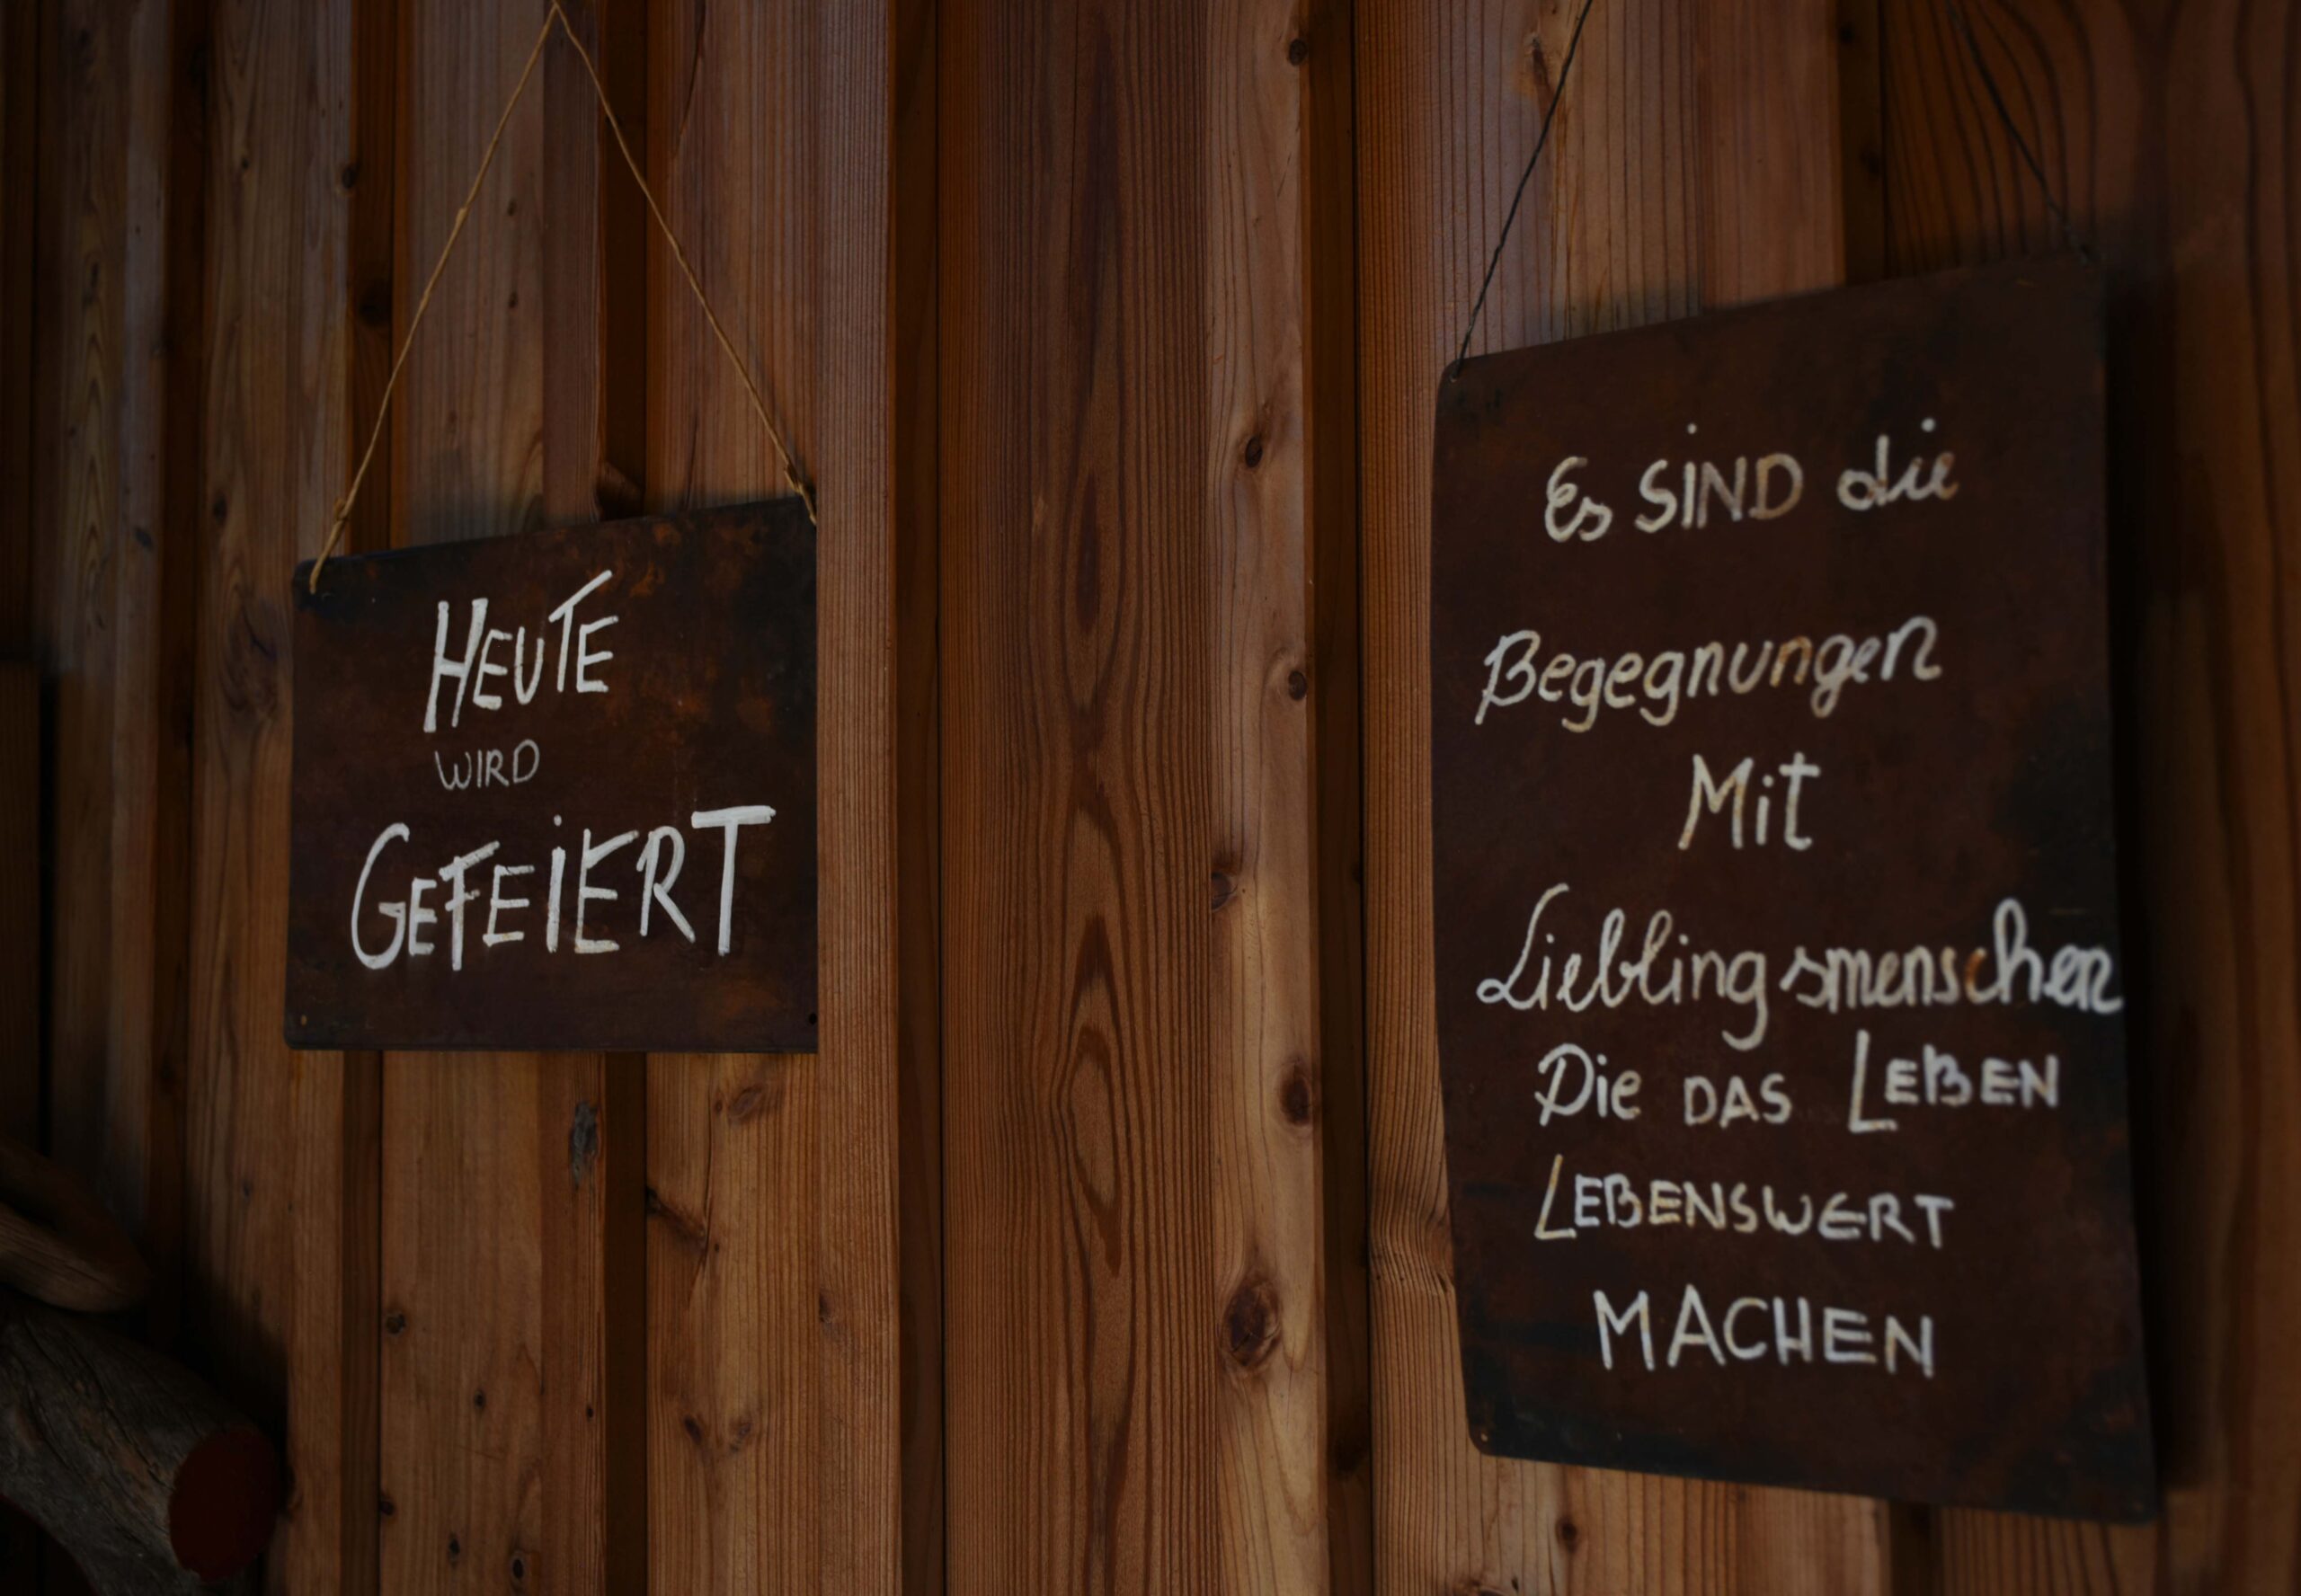 HEUTE
WIRD
GEFEIERT
Es SIND die
Begegnungen
Mit
Lieblingsmenschen
Die DAS LEBEN
LEBENSWERT
MACHEN